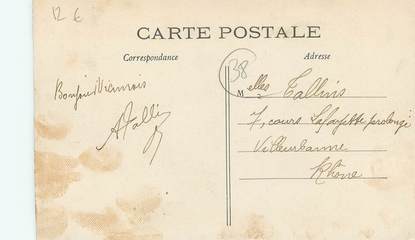 12 €
CARTE POSTALE
Correspondance
Adresse
38
Bonjour Viennois
A Tallin
Melles Tallins
7, cours Lafayette prolongé
Villeurbanne
Rhône